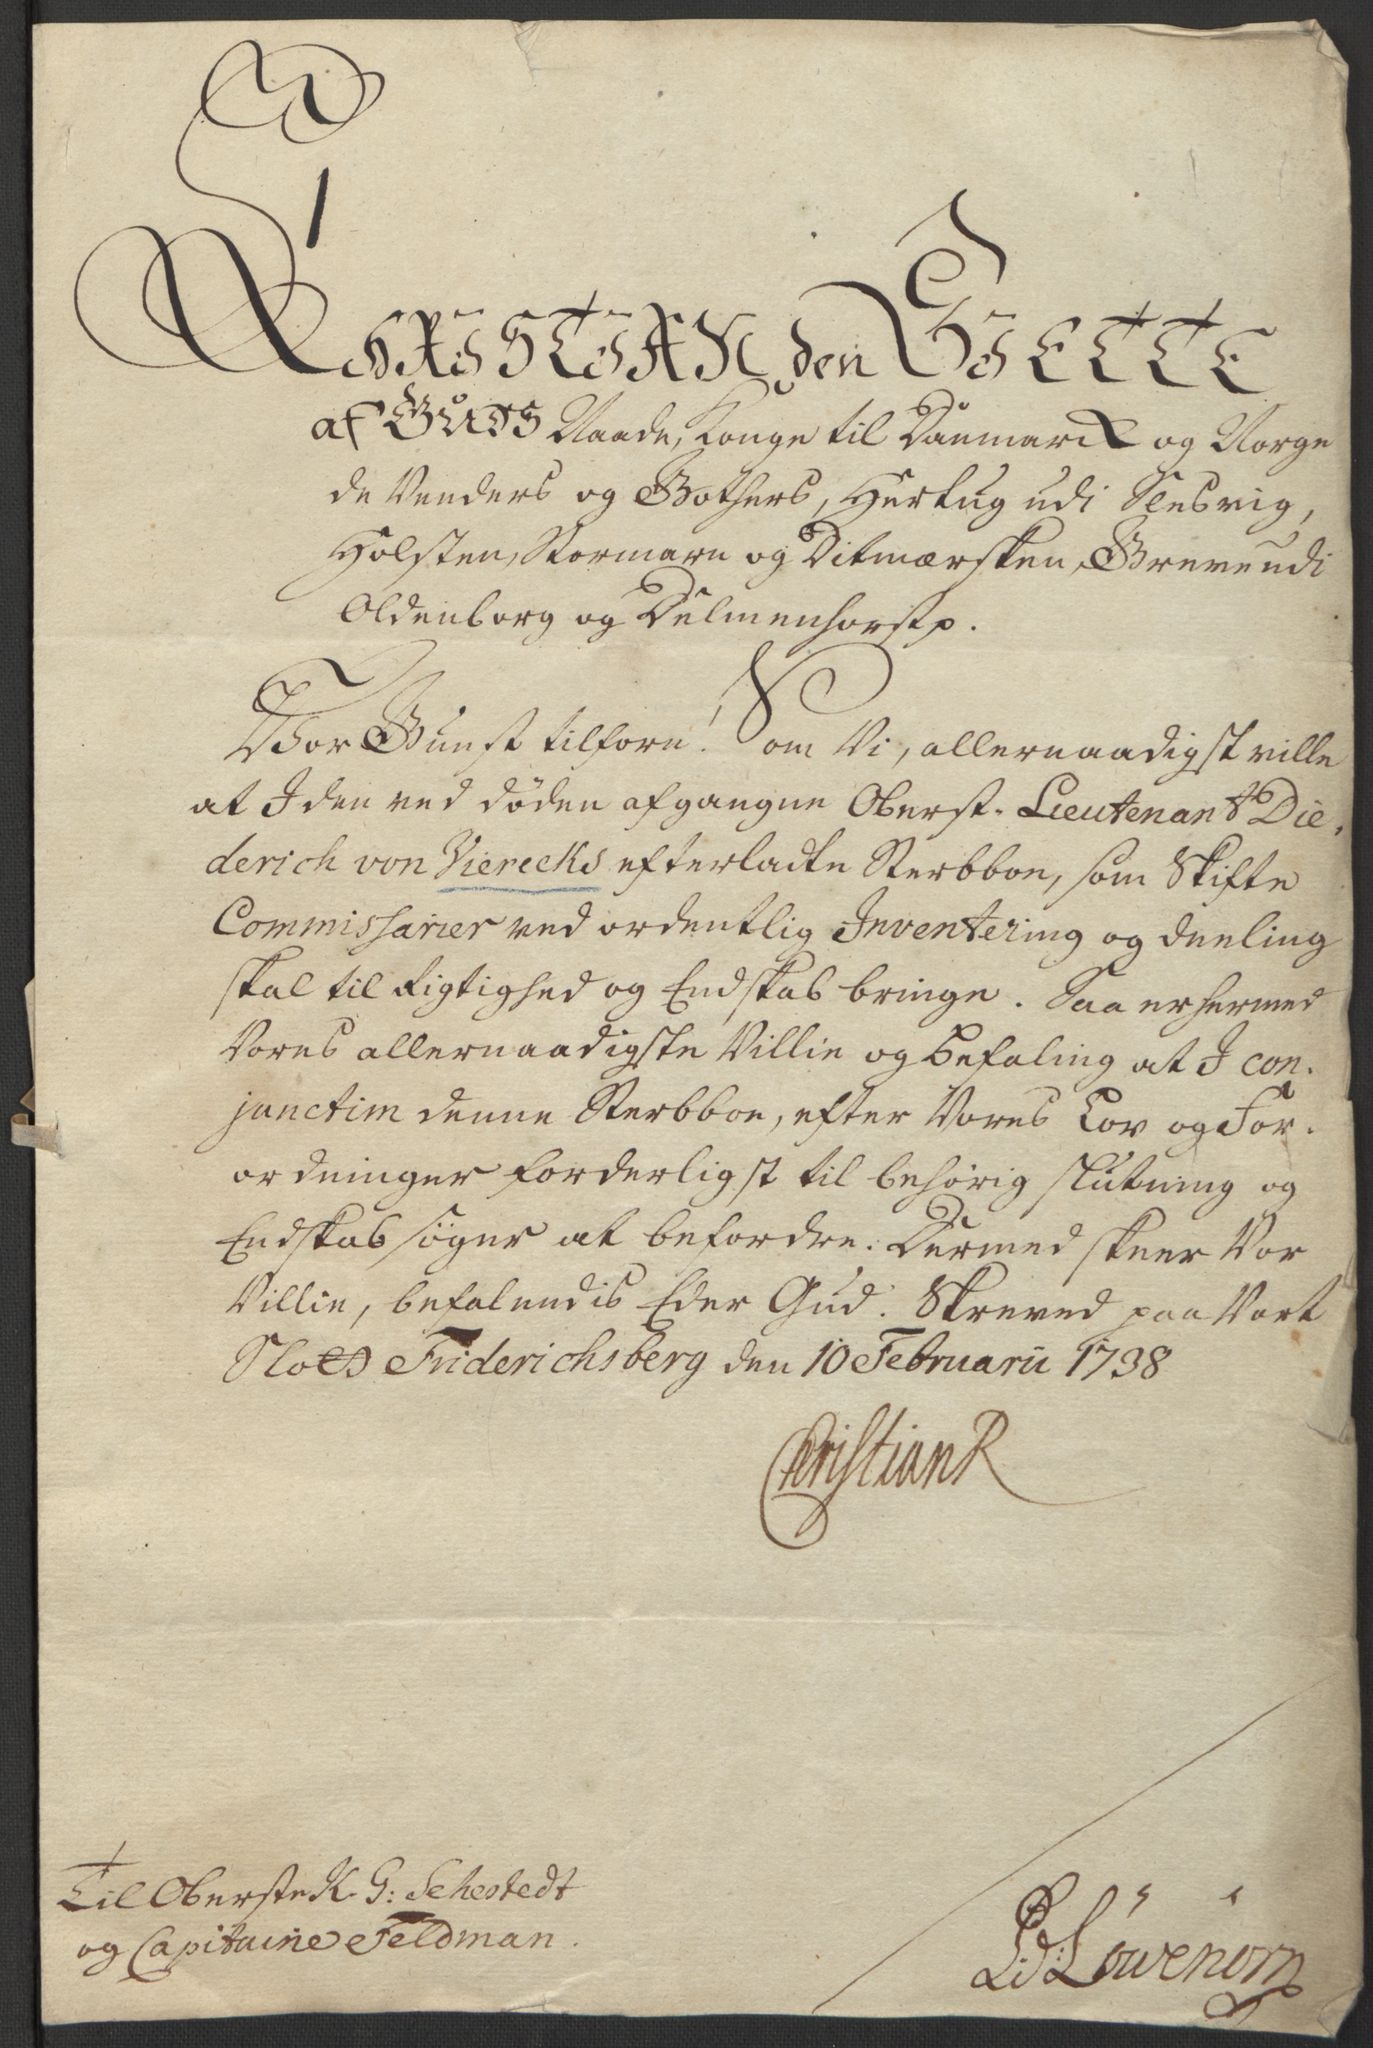 CHRISTIAN den SIETTE
af GUDS Naade, Konge til Danmarck og Norge
de Venders og Gothers, Hertug udi Slesvig,
Holsten, Stormarn og Ditmærsken, Greve udi
Oldenborg og Delmenhorst p.
Vor Gunst tilforn! Som Vi, allernaadigst ville
at I den ved døden afgangne Oberst-Lieutenant Die-
derich von Vierecks efterladte Sterbboe, som Skifte
Commissarier ved ordentlig Inventering og deeling
skal til Rigtighed og Endskab bringe. Saa er hermed
Vores allernaadigste Villie og befaling at I con-
junctim denne Sterbboe, efter Vores Lov og For-
ordninger forderligst til behørig slutning og
Endskab søger at befordre. Dermed skeer Vor
Villie, befalendis Eder Gud. Skreved paa Vort
Slott Friderichsberg den 10 Februarii 1738
Christian R
Til Oberste K G: Sehestedt
og Capitaine Feldman.
Löwenörn